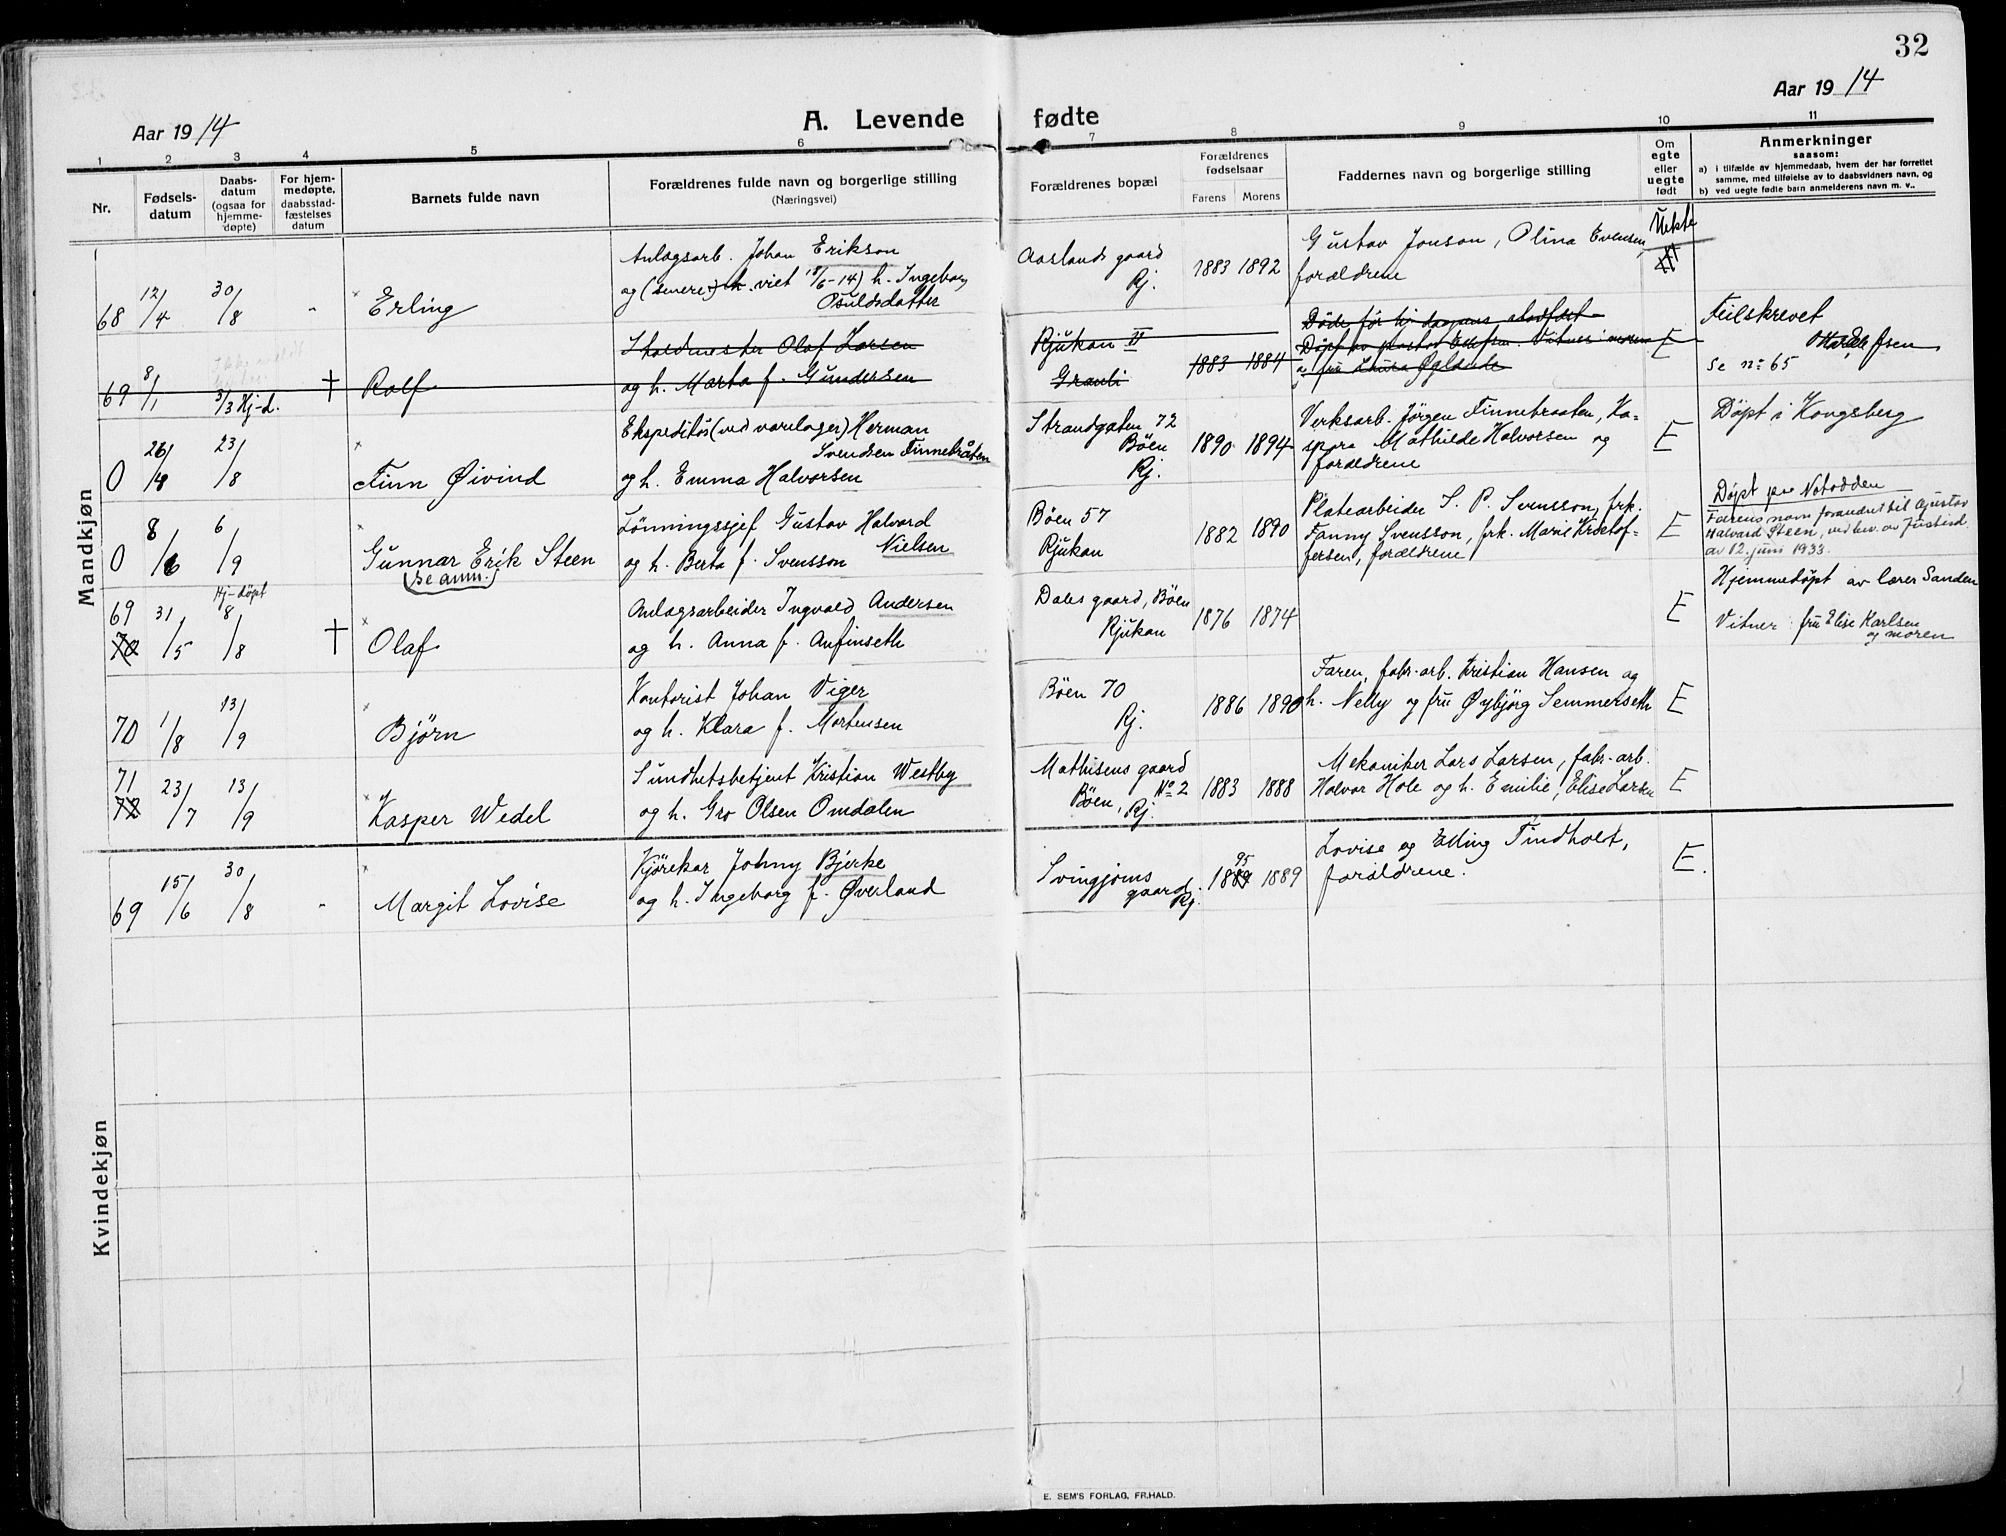 32
Aar 1914
A. Levende fødte
Aar 1914
1 2 3 4 5 6 7 8 9 10 11
Nr.
Fødsels-
datum
Daabs-
datum
(ogsaa for
hjemme-
døpte)
For hjem-
medøpte,
daabsstad-
fæstelses
datum
Barnets fulde navn
Forældrenes fulde navn og borgerlige stilling
(Næringsvei)
Forældrenes bopæl
Forældrenes
fødselsaar
Farens Morens
Faddernes navn og borgerlige stilling
Om
egte
eller
uegte
født
Anmerkninger
saasom:
a) i tilfælde av hjemmedaab, hvem der har forrettet
samme, med tilføielse av to daabsvidners navn, og
b) ved uegte fødte barn anmelderens navn m. v..
Mandkjøn
68 12/4 30/8 " Erling
Anlægsarb. Johan Erikson
og (senere) h. viet 18/6-14) h. Ingeborg
Osuldsdatter
Aaslands gaard
Rj.
1883 1892
Gustav Jonson, Olina Evensen,
forældrene
Uekte
69 8/1 3/3 Hj-d. † Rolf
Olaf Larsen
og h. Marta f. Gundersen
Rjukan II
Granli
1883 1884
Døde før hj. daapens stadfæst
Vitner: moren
og fru Laura Øglænde
E
Feilskrevet
Se nº 65
0 26/4 23/8 Finn Øivind
Ekspeditør (ved varelager) Herman
Svendsen Finnebråten
og h. Emma Halvorsen
Strandgaten 72
Bøen
Rj.
1890 1894
Verksarb. Jørgen Finnebraaten, Ka-
spara Mathilde Halvorsen og
forældrene
E
Døpt i Kongsberg
0 8/6 6/9 Gunnar Erik Steen
(se anm.)
Lønningssjef Gustav Halvard
Nielsen
og h. Berta f. Svensson
Bøen 57
Rjukan
1882 1890
Platearbeider S. P. Svensson, frk.
Fanny Svensson, frk. Marie Kristof-
fersen, forældrene
E
Døpt paa Notodden
Farens navn forandret til Gustav
Halvard Steen, ved bev. av Justisd.
av 12. juni 1933.
69
70 31/5 Hj-døpt 8/8 † Olaf
Anlægsarbeider Ingvald Andersen
og h. Anna f. Anfinseth
Dales gaard, Bøen
Rjukan
1876 1874
E
Hjemmedøpt av lærer Sanden
Vitner: fru Elise Karlsen
og moren
70 1/8 13/9 Bjørn
Kontorist Johan Viger
og h. Klara f. Mortensen
Bøen 70
Rj.
1886 1890
Faren, fabr-arb. Kristian Hansen og
h. Nelly og fru Øybjørg Semmerseth
E
71
72 23/7 13/9 Kasper Wedel
Sundhetsbetjent Kristian Westby
og h. Gro Olsen Omdalen
Mathisens gaard
Nº 2
Bøen, Rj.
1883 1888
Mekaniker Lars Larsen, fabr-arb.
Halvor Hole og h. Emilie, Elise Larsen
E
Kvindekjøn
69 15/6 30/8 " Margit Lovise
Kjørekar Johny Bjerke
og h. Ingeborg f. Øverland
Svingjoms
gaard. Rj.
1889 95 1889
Lovise og Elling Tindholt,
forældrene.
E.
E. SEM'S FORLAG, FR.HALD.